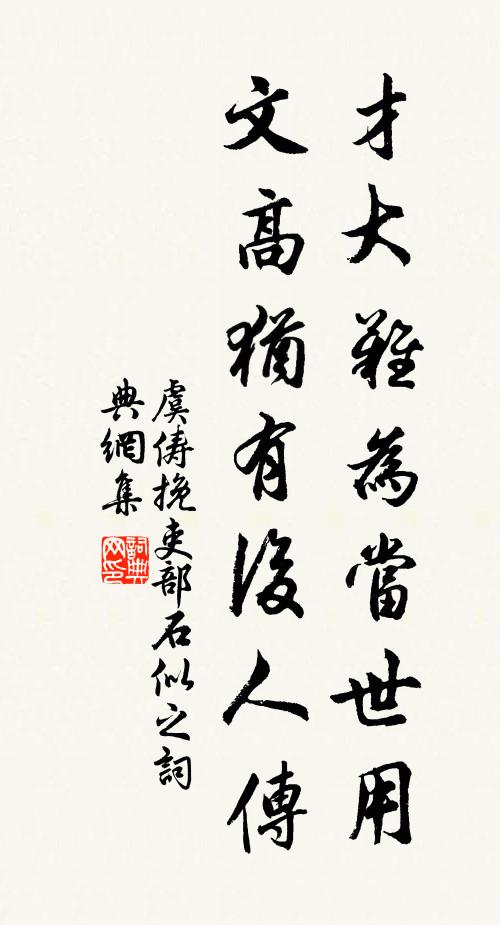 才大難為當世用
文高猶有後人傳
虞儔挽吏部石似之詞
典網集
詞典網印